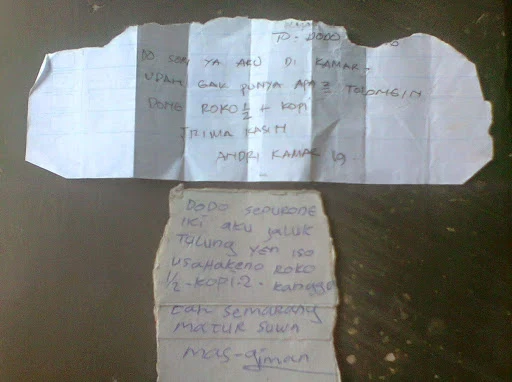 TO - DODO
DO SORI YA AKU DI KAMAR
UDAH GAK PUNYA APA2 TOLONGIN
DONG ROKO 1/2 + KOPI
TRIMA KASIH
ANDRI KAMAR 19
DODO SEPURONE
IKI AKU JALUK
TULUNG YEN ISO
USAHAKENO ROKO
1/2 - KOPI. 2. KANGGO
CAH SEMARANG
MATUR SUWA
MAS - giman